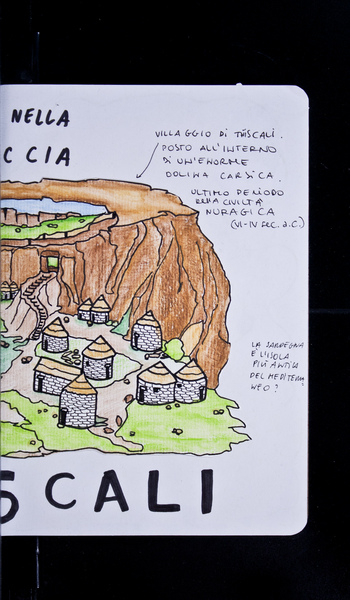 NELLA
CCIA
VILLAGGIO DI TÌSCALI.
POSTO ALL'INTERNO
DI UN'ENORME
DOLINA CARSICA.
ULTIMO PERIODO
DELLA CIVILTÀ
NURAGICA
(VI-IV SEC. a.C.)
LA SARDEGNA
È L'ISOLA
PIÙ ANTICA
DEL MEDITERRA
NEO?
SCALI